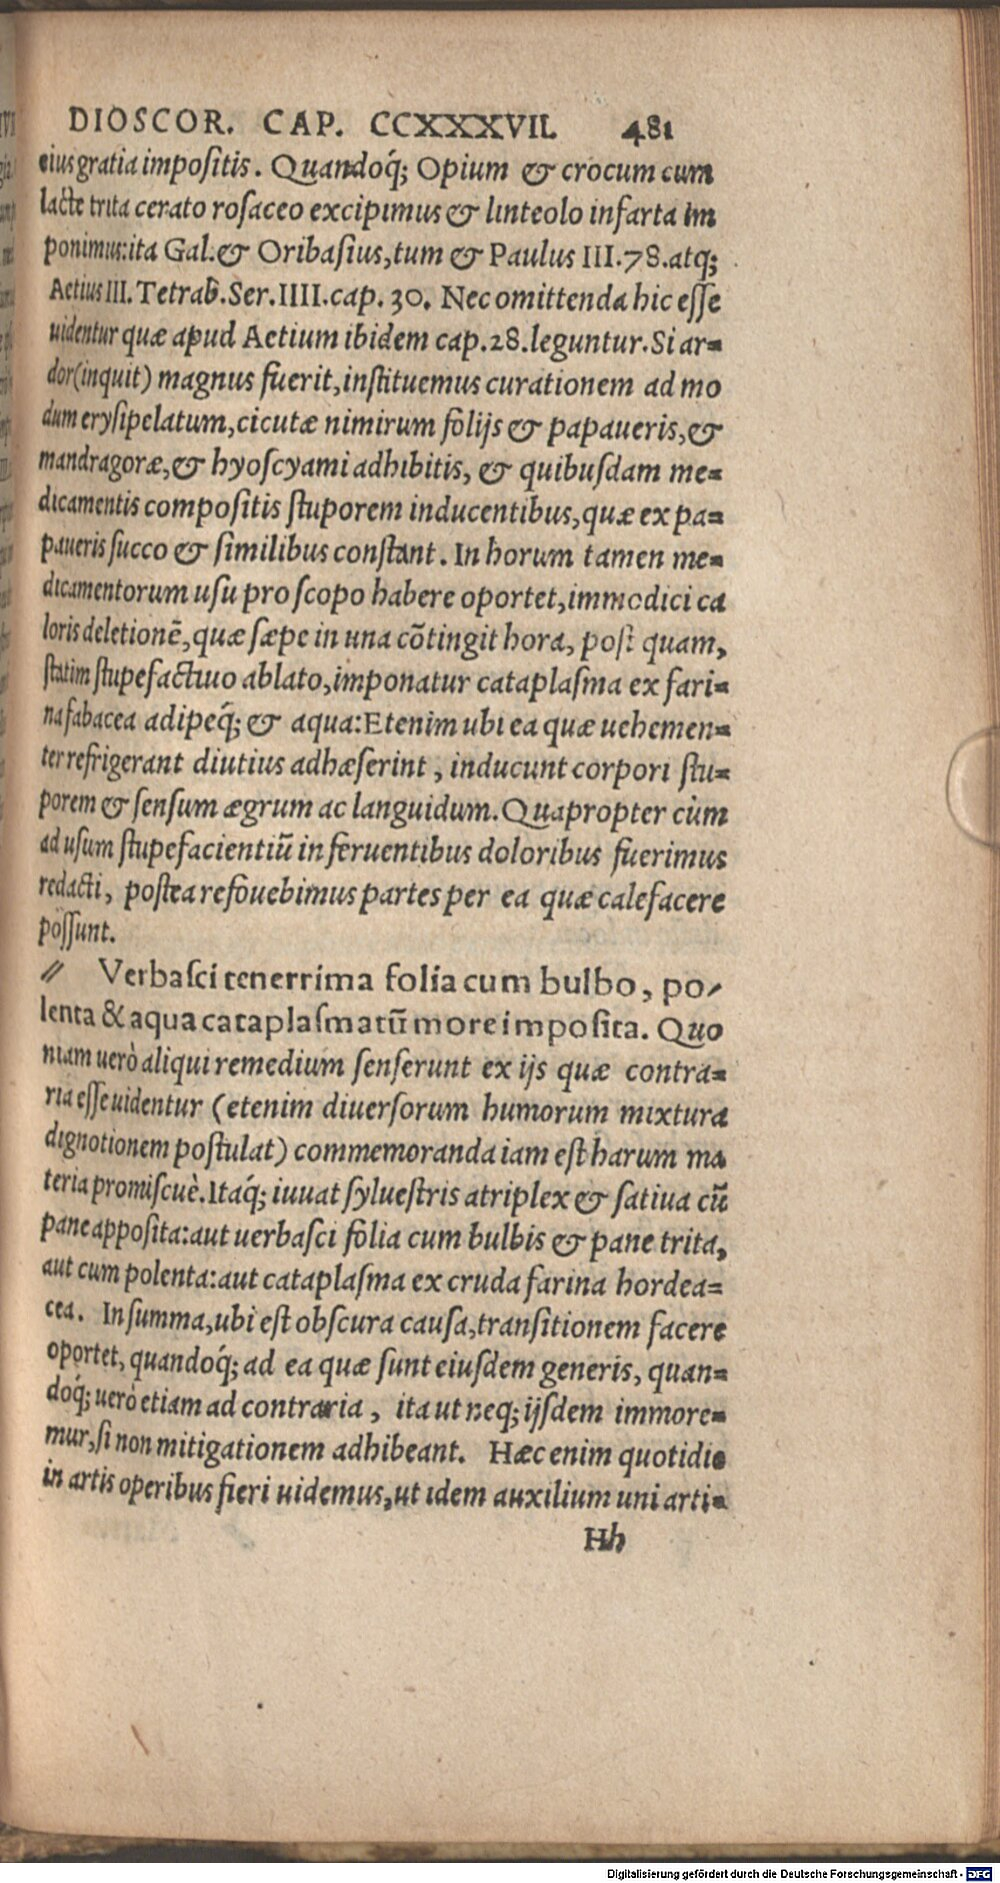 DIOSCOR. CAP. CCXXXVII. 481
eius gratia impositis. Quandoq́; Opium & crocum cum
lacte trita cerato rosaceo excipimus & linteolo infarta im
ponimus: ita Gal. & Oribasius, tum & Paulus III. 78. atq;
Aetius III. Tetrab. Ser. IIII. cap. 30. Nec omittenda hic esse
uidentur quæ apud Aetium ibidem cap. 28. leguntur. Si ar=
dor (inquit) magnus fuerit, instituemus curationem ad mo
dum erysipelatum, cicutæ nimirum folijs & papaueris, &
mandragoræ, & hyoscyami adhibitis, & quibusdam me=
dicamentis compositis stuporem inducentibus, quæ ex pa=
paueris succo & similibus constant. In horum tamen me=
dicamentorum usu pro scopo habere oportet, immodici ca
loris deletionẽ, quæ sæpe in una cõtingit hora, post quam,
statim stupefactiuo ablato, imponatur cataplasma ex fari=
na fabacea adipeq́; & aqua: Etenim ubi ea quæ uehemen=
ter refrigerant diutius adhæserint, inducunt corpori stu=
porem & sensum ægrum ac languidum. Quapropter cùm
ad usum stupefacientiũ in feruentibus doloribus fuerimus
redacti, postea refouebimus partes per ea quæ calefacere
possunt.
// Verbasci tenerrima folia cum bulbo, po-
lenta & aqua cataplasmatũ more imposita. Quo
niam uerò aliqui remedium senserunt ex ijs quæ contra=
ria esse uidentur (etenim diuersorum humorum mixtura
dignotionem postulat) commemoranda iam est harum ma
teria promiscuè. Itaq́; iuuat syluestris atriplex & satiua cũ
pane apposita: aut uerbasci folia cum bulbis & pane trita,
aut cum polenta: aut cataplasma ex cruda farina hordea=
cea. In summa, ubi est obscura causa, transitionem facere
oportet, quandoq́; ad ea quæ sunt eiusdem generis, quan=
doq́; uerò etiam ad contraria, ita ut neq; ijsdem immore=
mur, si non mitigationem adhibeant. Hæc enim quotidie
in artis operibus fieri uidemus, ut idem auxilium uni arti=
Hh
Digitalisierung gefördert durch die Deutsche Forschungsgemeinschaft - DFG